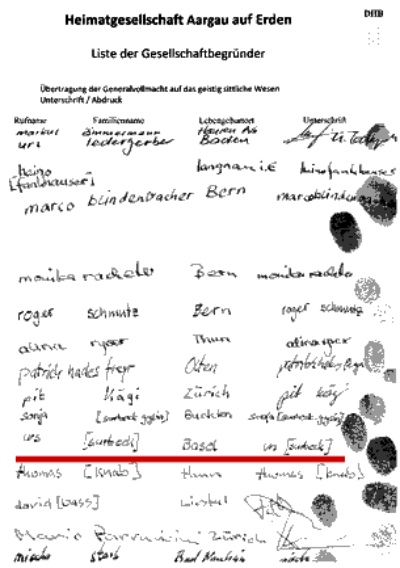 DHB
Heimatgesellschaft Aargau auf Erden
Liste der Gesellschaftbegründer
Übertragung der Generalvollmacht auf das geistig sittliche Wesen
Unterschrift / Abdruck
Rufname Familienname Lebensgeburtort Unterschrift
markus Zimmermann Hausen AG
urs ledergerber Baden
heino langnau i.E heino fankhauser
[fankhauser]
marco blindenbacher Bern marco blindenbacher
monika rachele Bern monika rachele
roger schmutz Bern roger schmutz
alina ryser Thun alina ryser
patrick hades Olten
pit kägi Zürich pit kägi
sonja [surbeck gysin] Buckten sonja [surbeck gysin]
urs [surbeck] Basel urs [surbeck]
thomas [knab] thomas [knab]
david [bass] Liestal
Mario Zürich
mischa stark Bad